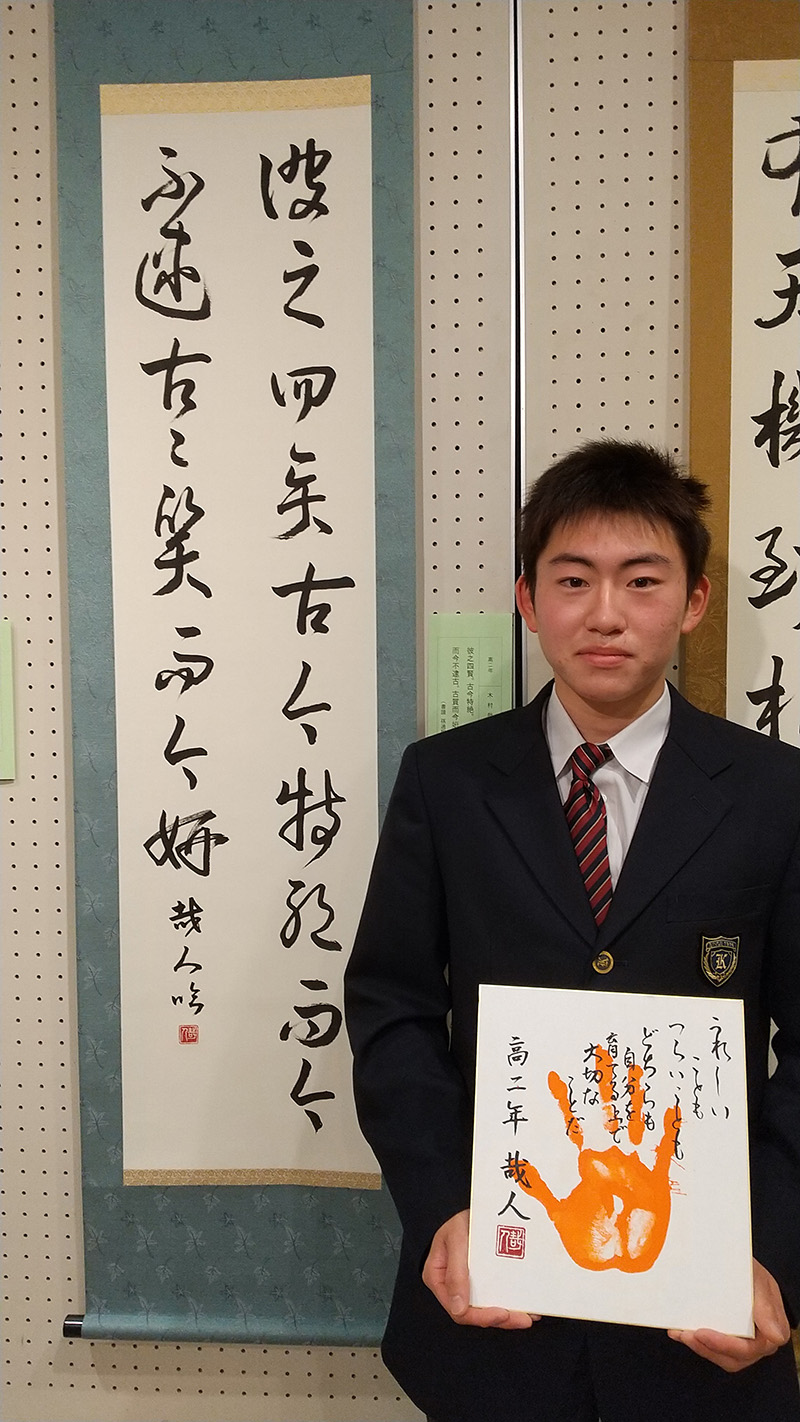 彼之四賢古今特絶而今
不逮古々質而今妍
哉人臨
高二年 木村
彼之四賢、古今特絶。
而今不逮古、古質而今妍
うれしい
ことも
つらいことも
どちらも
自分を
育てる上で
大切な
ことだ
高二年 哉人
天機